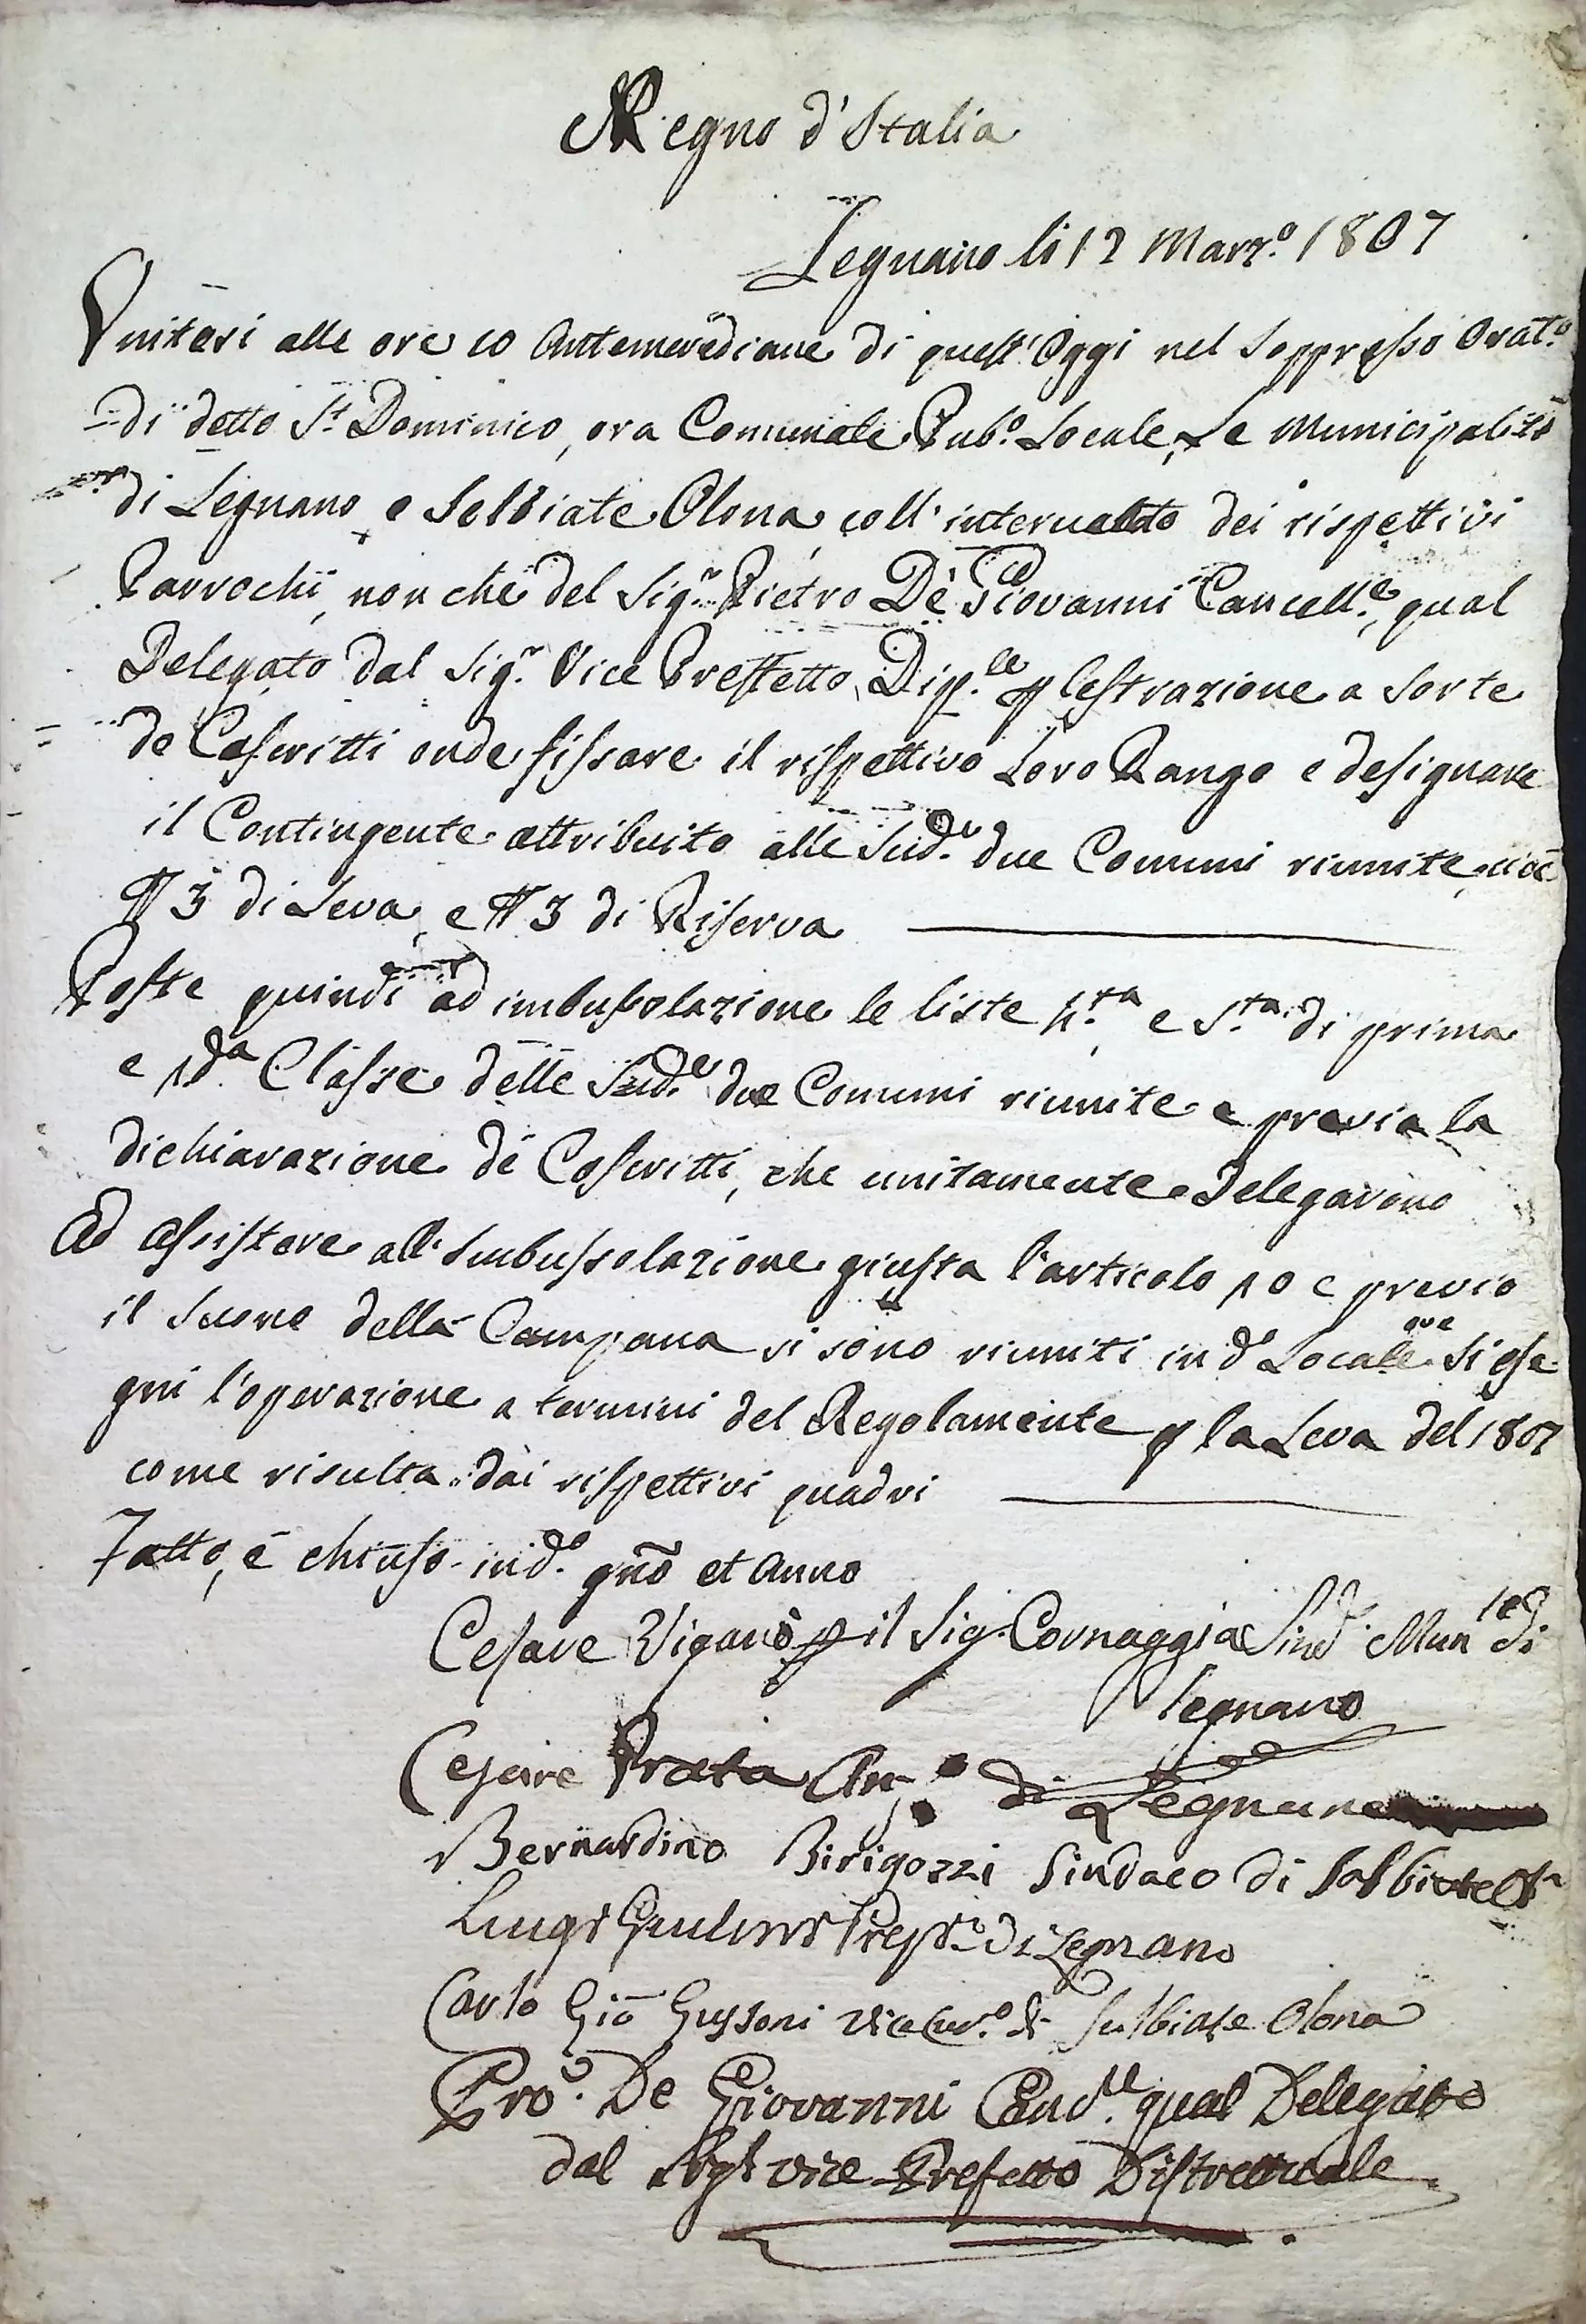 Regno d'Italia
Legnano li 12 Marz.o 1807
Unitesi alle ore 10 Antemeridiane di quest'Oggi nel Soppresso Orat.o
di detto S.t Dominico, ora Comunale Pub.o Locale, Le Municipalità
di Legnano e Solbiate Olona coll'intervento dei rispettivi
Parrochi, non che del Sig.r Pietro De Giovanni Cancell.e, qual
Delegato dal Sig.r Vice Preffetto Dip.le p lestrazione a Sorte
de Coscritti onde fissare il rispettivo Loro Rango e designare
il Contingente attribuito alle Sud.e due Comuni riunite, cioè
N 3 di Leva, e N 3 di Riserva
Poste quindi ad imbussolazione le liste 4.ta e 5.ta di prima
e 2da Classe delle Sud.e due Comuni riunite e previa la
dichiarazione de Coscritti, che unitamente Delegarono
Ad assistere all'imbussolazione giusta l'articolo 10 e previo
il Suono della Campana si sono riuniti in d.o Locale ove si ese
guì l'operazione a termini del Regolamente p la Leva del 1807
come risulta dai rispettivi quadri
Fatto, e chiuso in d.o gno et Anno
Cesare Viganò p il Sig. Cornaggia Sind. Mun.le di
Legnano
Cesare Prata An. di Legnano
Bernardino Birigozzi Sindaco di Solbiate Ol
Luigi Prep.to di Legnano
Carlo Gio Gussoni Vice Cur.o di Solbiate Olona
Pro. De Giovanni Canc.ll qual Delegato
dal Sig.r vice Prefetto Distrettuale